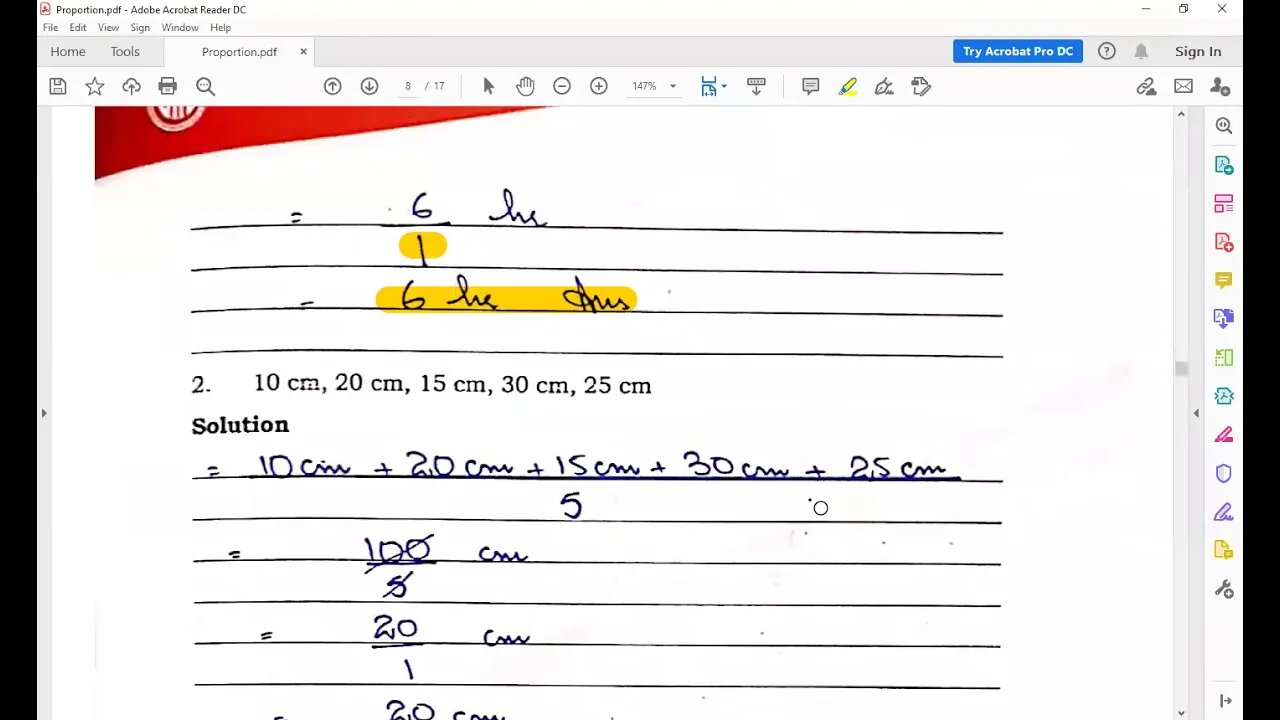 Proportion.pdf - Adobe Acrobat Reader DC
File Edit View Sign Window Help
Home Tools Proportion.pdf × Try Acrobat Pro DC Sign In
8 / 17 147%
= 6 hr
1
= 6 hr Ans
2. 10 cm, 20 cm, 15 cm, 30 cm, 25 cm
Solution
= 10 cm + 20 cm + 15 cm + 30 cm + 25 cm
5
= 100 cm
5
= 20 cm
1
= 20 cm